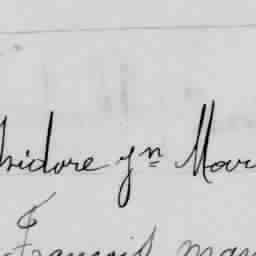 Isidore Jn Mar
François mar